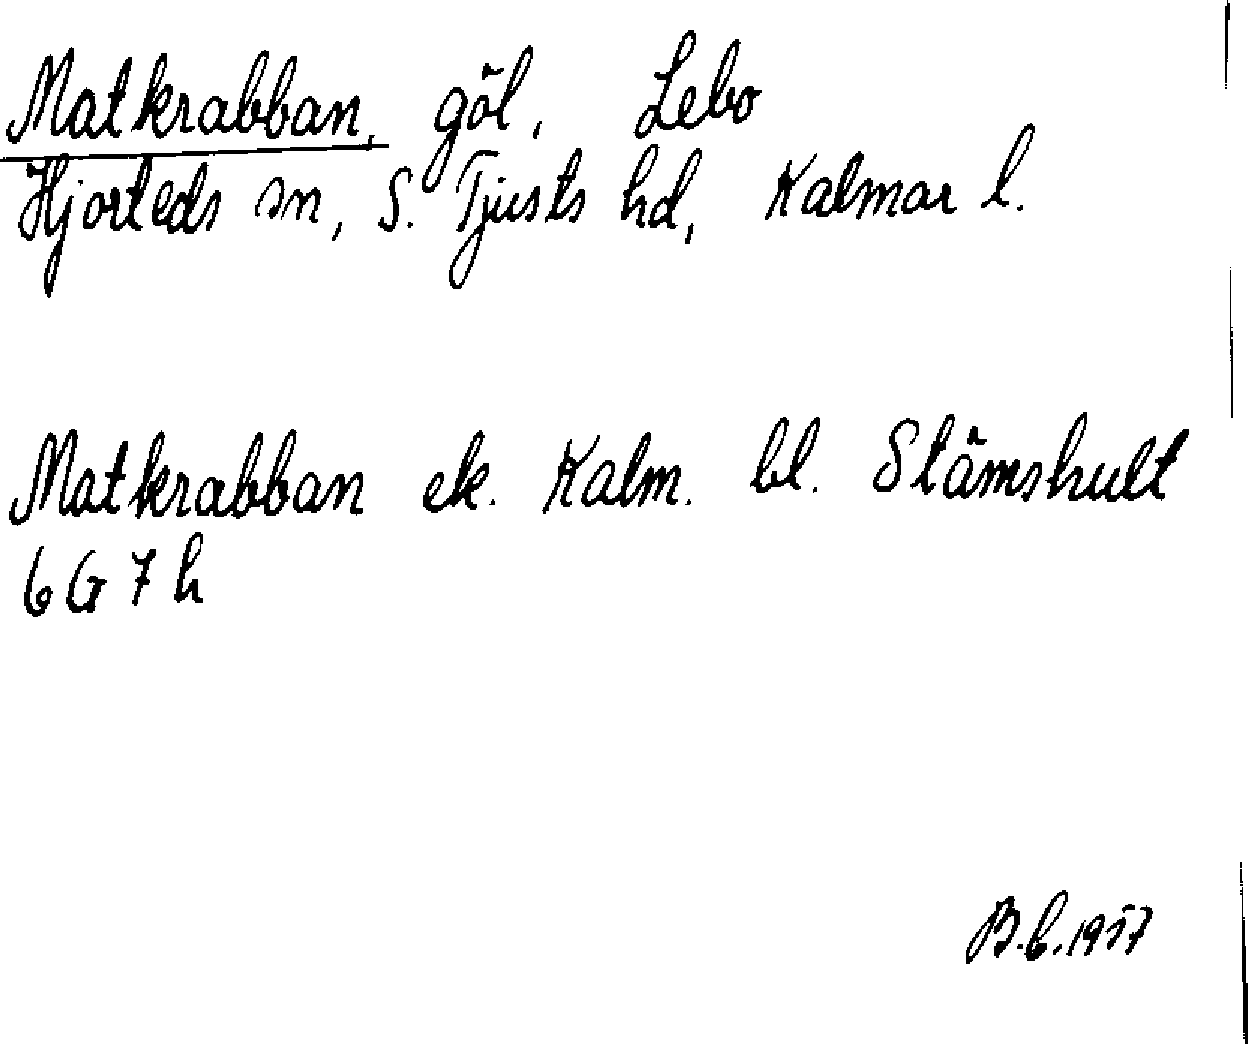 Matkrabban, göl, Lebo
Hjorteds sn, S. Tjusts hd, Kalmar l.
Matkrabban ek. Kalm. bl. Stämshult
6 G 7 h
B.b. 1957